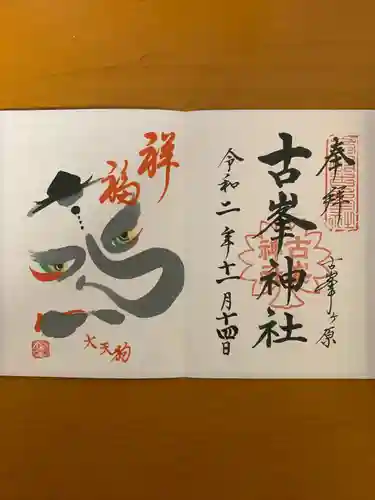 奉拝
古峯ヶ原
古峯神社
令和二年十一月十四日
祥
福
大天狗